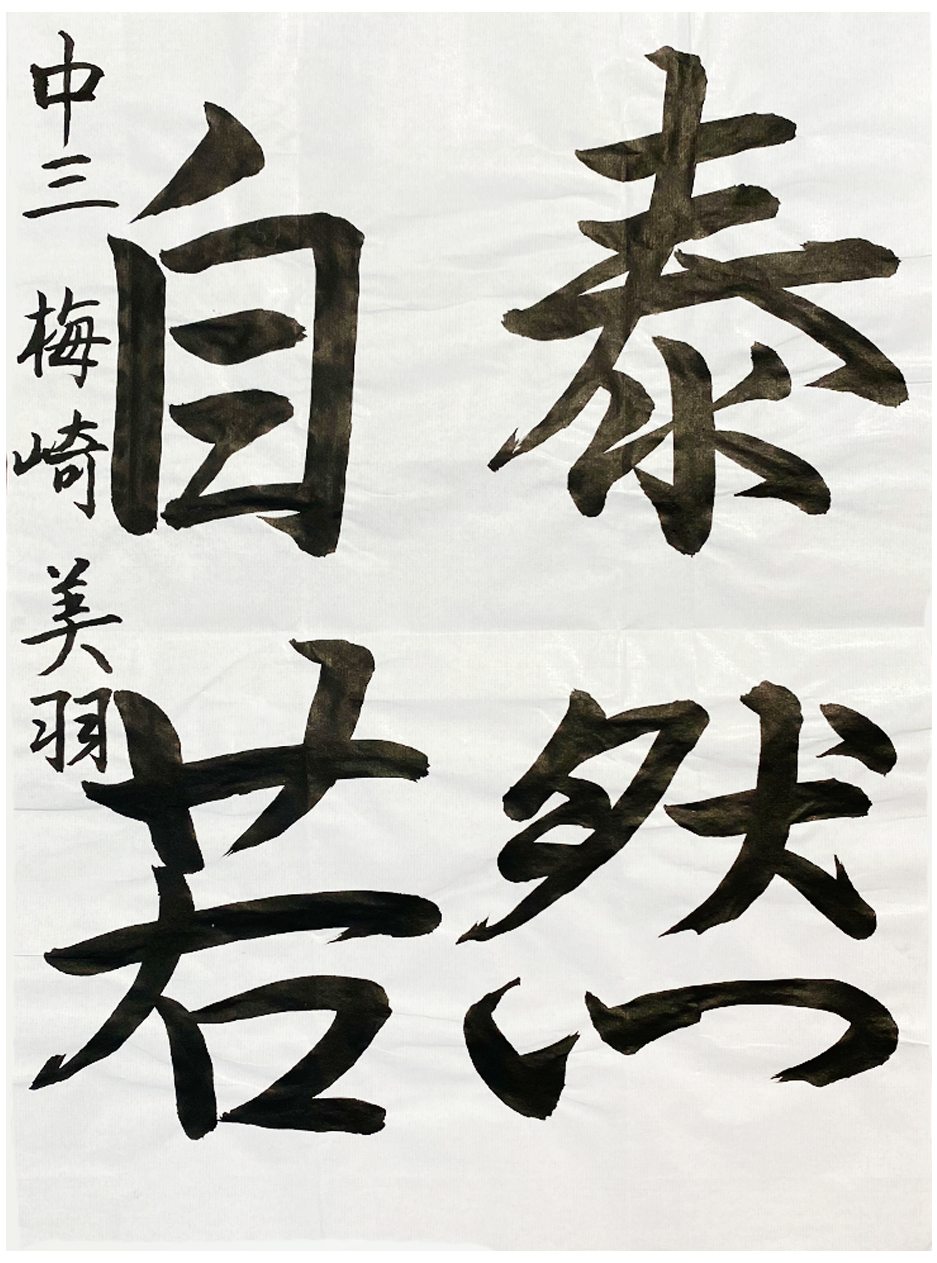 泰然
自若
中三 梅崎 美羽